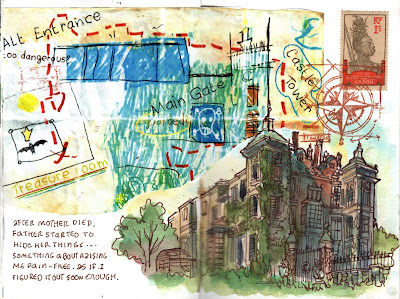 Alt Entrance
:oo dangerous
Castle
Tower
Main Gate
Treasure room
RF
1c
GABON
AFTER MOTHER DIED,
FATHER STARTED TO
HIDE HER THINGS...
SOMETHING ABOUT RAISING
ME PAIN-FREE. AS IF I
FIGURED IT OUT SOON ENOUGH.